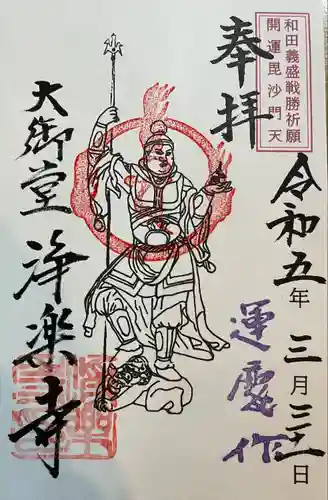 和田義盛戦勝祈願
開運毘沙門天
奉拝
令和五年三月三十一日
運慶作
大御堂
浄楽寺